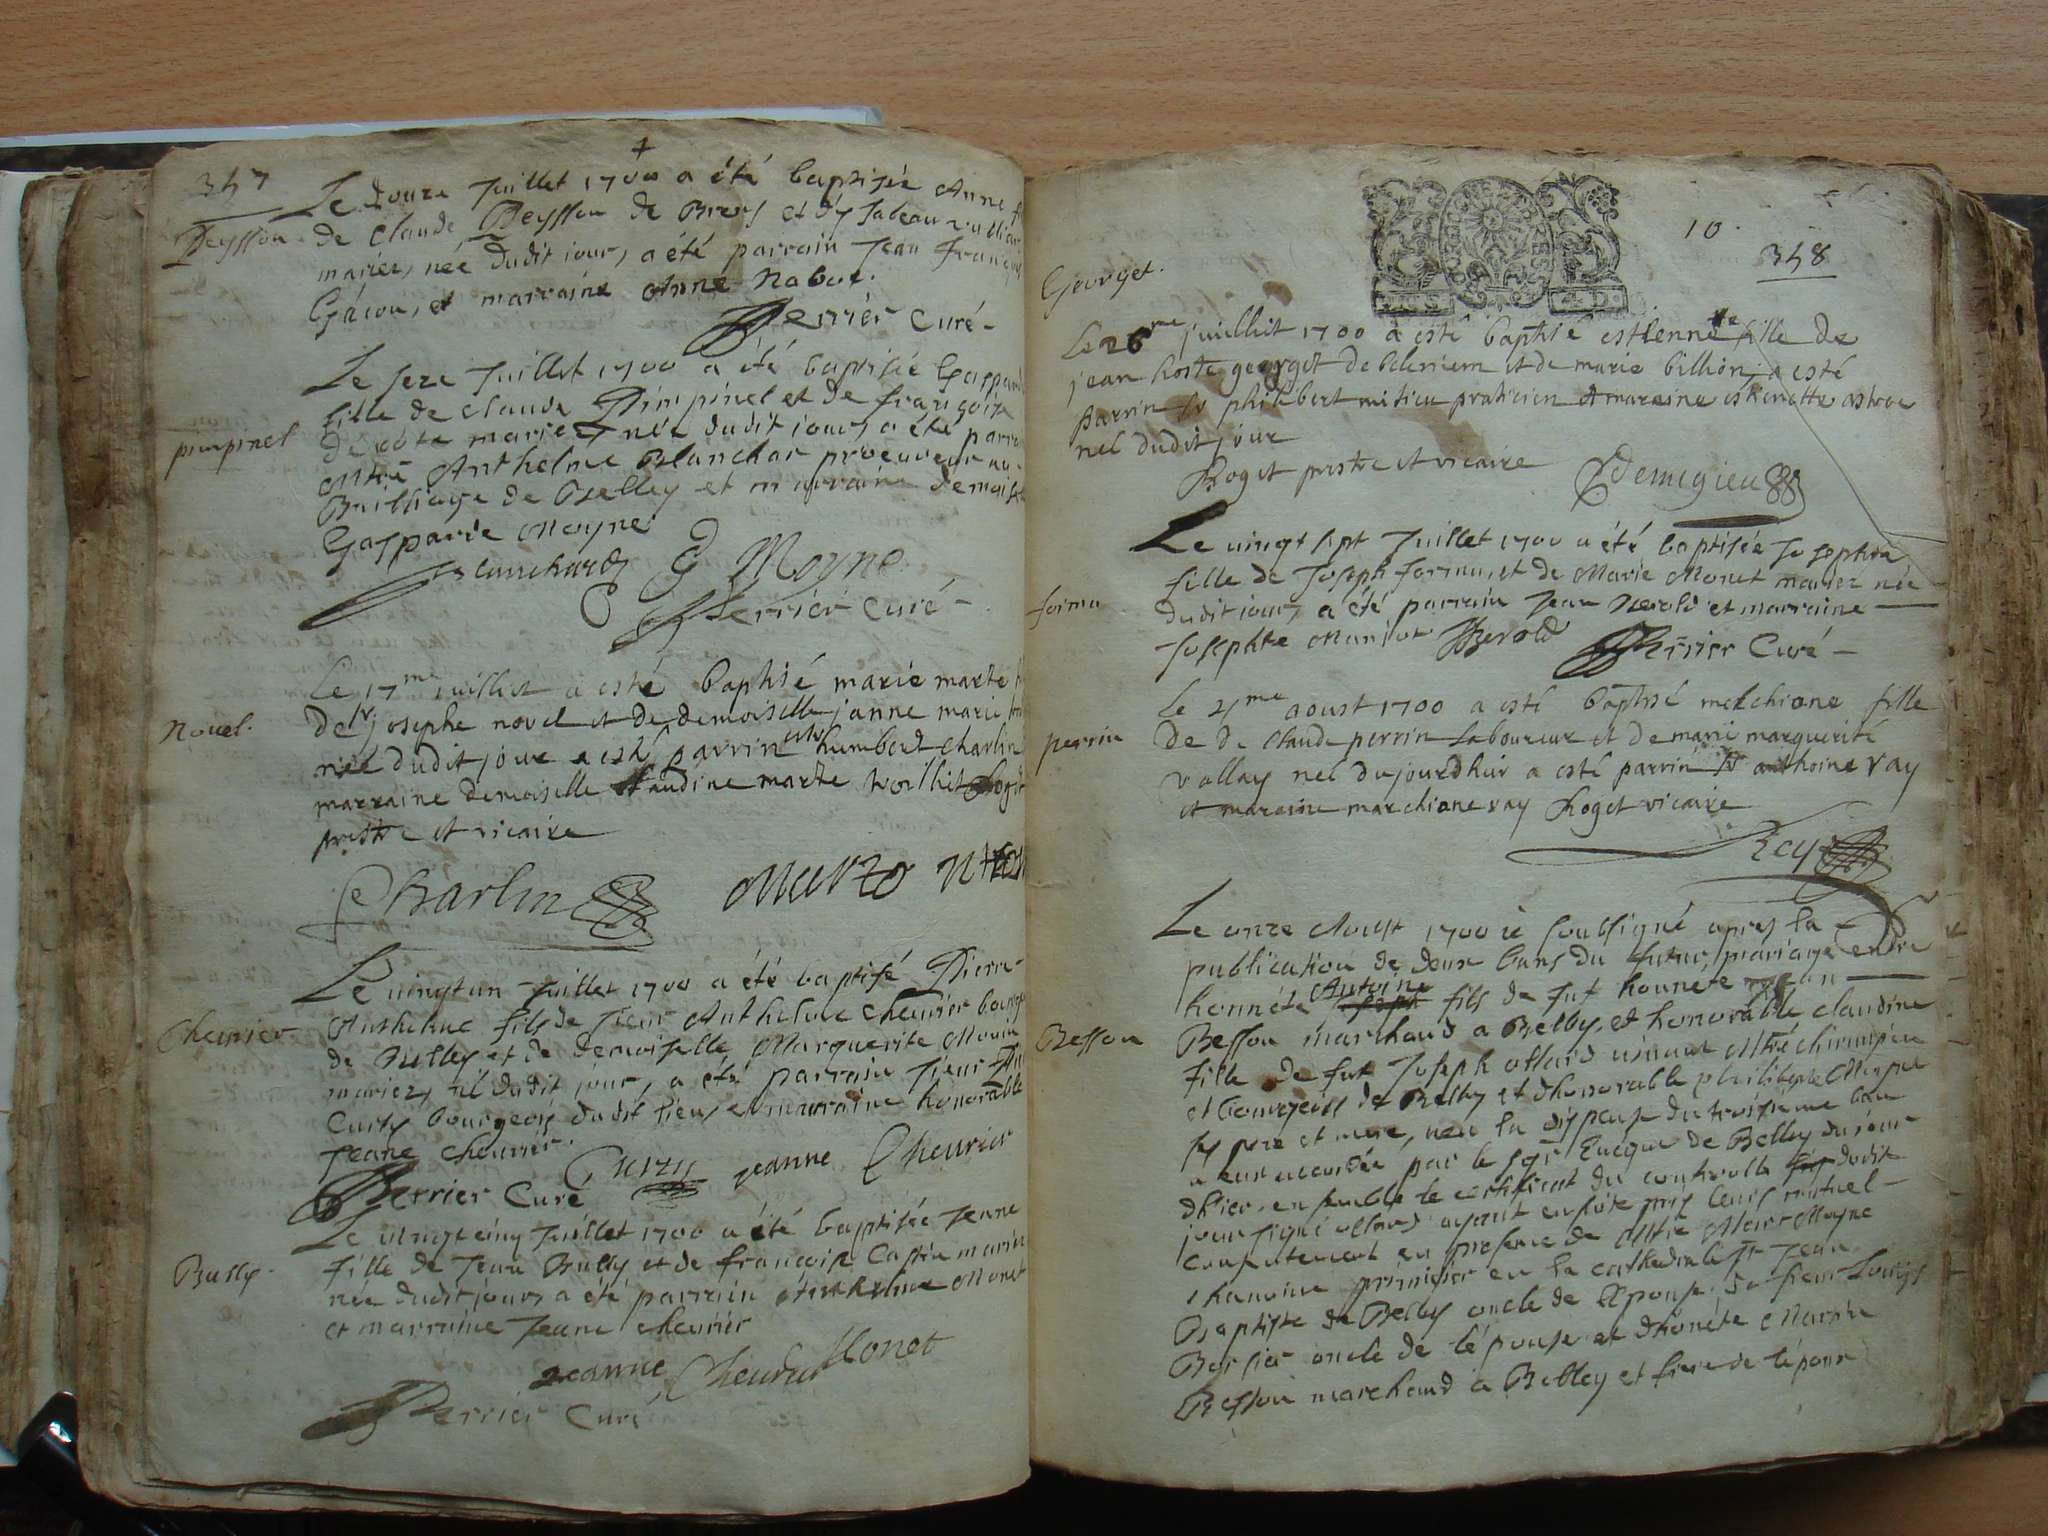 347
Le douze Juillet 1700 a été baptisée Anne
Peysson de Claude Beysson de Brens et d'ysabeau
mariez, née dudit jour, a été parrain Jean françois
Gacon, et marraine Anne Nabot.
Perrier Curé
Le seze Juillet 1700 a été baptisée Gaspar
pimpinel
fille de Claude Pimpinel et de françoise
mariez, née dudit jour, a été parra
Anthelme Blanchar procureur au
Bailliage de Belley et marraine demois
Gasparde Moyne
Blanchard G Moyne
Perrier Curé
Le 17me juillet a esté baptisé marie marte
Novel.
de Sr josephe novel et de demoiselle janne marie
née dudit jour a esté parrin humbert charlin
marraine demoiselle claudine marte Roget
prestre et vicaire
Charlin
Le vingtun Juillet 1700 a été baptisé Pierre
Chevrier
Anthelme fils de sieur Anthelme Chevrier bourgeo
de Belley et de demoiselle Marguerite
mariez, né dudit jour, a été parrain sieur
Curty bourgeois dudit lieu, et marraine honorable
Jeane Chevrier.
Perrier Curé Curty jeanne Chevrier
Le vingtcinq Juillet 1700 a été baptisée Jenne
Bully.
fille de Jean Bully et de françoise mariez
née dudit jour, a été parrain Anthelme Monet
et marraine Jeane Chevrier
jeanne Chevrier Monet
Perrier Curé
10.
348
Georget.
Le 26me juilliet 1700 a esté baptisé estienne fille de
jean georget de et de marie billion, a esté
parrin Sr philibert praticien et maraine
nel dudit jour
Roget prestre et vicaire Demigieu
Le vingt sept Juillet 1700 a été baptisée Josephte
fornu
fille de Joseph fornu, et de Marie Monet mariez née
dudit jour, a été parrain Jean Herold et marraine
Josephte Herold Perrier Curé
Le me aoust 1700 a esté baptisé melchione fille
perrin
de Claude perrin laboureur et de marie marguerite
vallay nel dujourdhuir a esté parrin Sr anthoine ray
et maraine marchione ray Roget vicaire
Rey
Le onze Aoust 1700 je soussigné apres la
publication de deux bans du futur mariage entre
honnéte Antoine fils de fut honnéte
Besson
Besson marchand a Belley, et honorable claudine
fille de fut Joseph ollard vivant Mtre chirurgien
et bourgeois de Belley et d'honorable philiberte
ses pere et mere, veu la dispense du troisieme ban
a eux accordée par le sgr Eveque de Belley du jour
dhier, ensemble le certificat du controlle dudit
jour signé ayant ensuite pris leurs mutuel
consentement en presence de Mtre Moyne
chanoine primicier en la cathedrale St Jean
Baptiste de Belley oncle de l'Epouse, du sieur Louys
oncle de l'épouse et d'honéte
Besson marchand à Belley et frere de l'époux